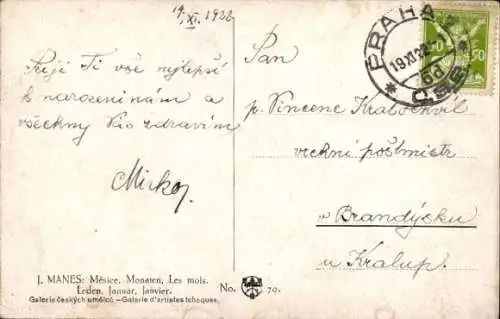 19. XI. 1922
Přeji Ti vše nejlepší
k narozeninám a
všechny Vás zdravím
Mirko.
Pan
p. Vincenc Kratochvíl
vrchní poštmistr
v Brandýsku
u Kralup.
PRAHA
19.XI.22
ČSP
50
J. MANES: Měsíce. Monaten, Les mois.
Leden. Januar. Janvier.
Galerie českých umělců — Galerie d'artistes tchèques.
No. 79.